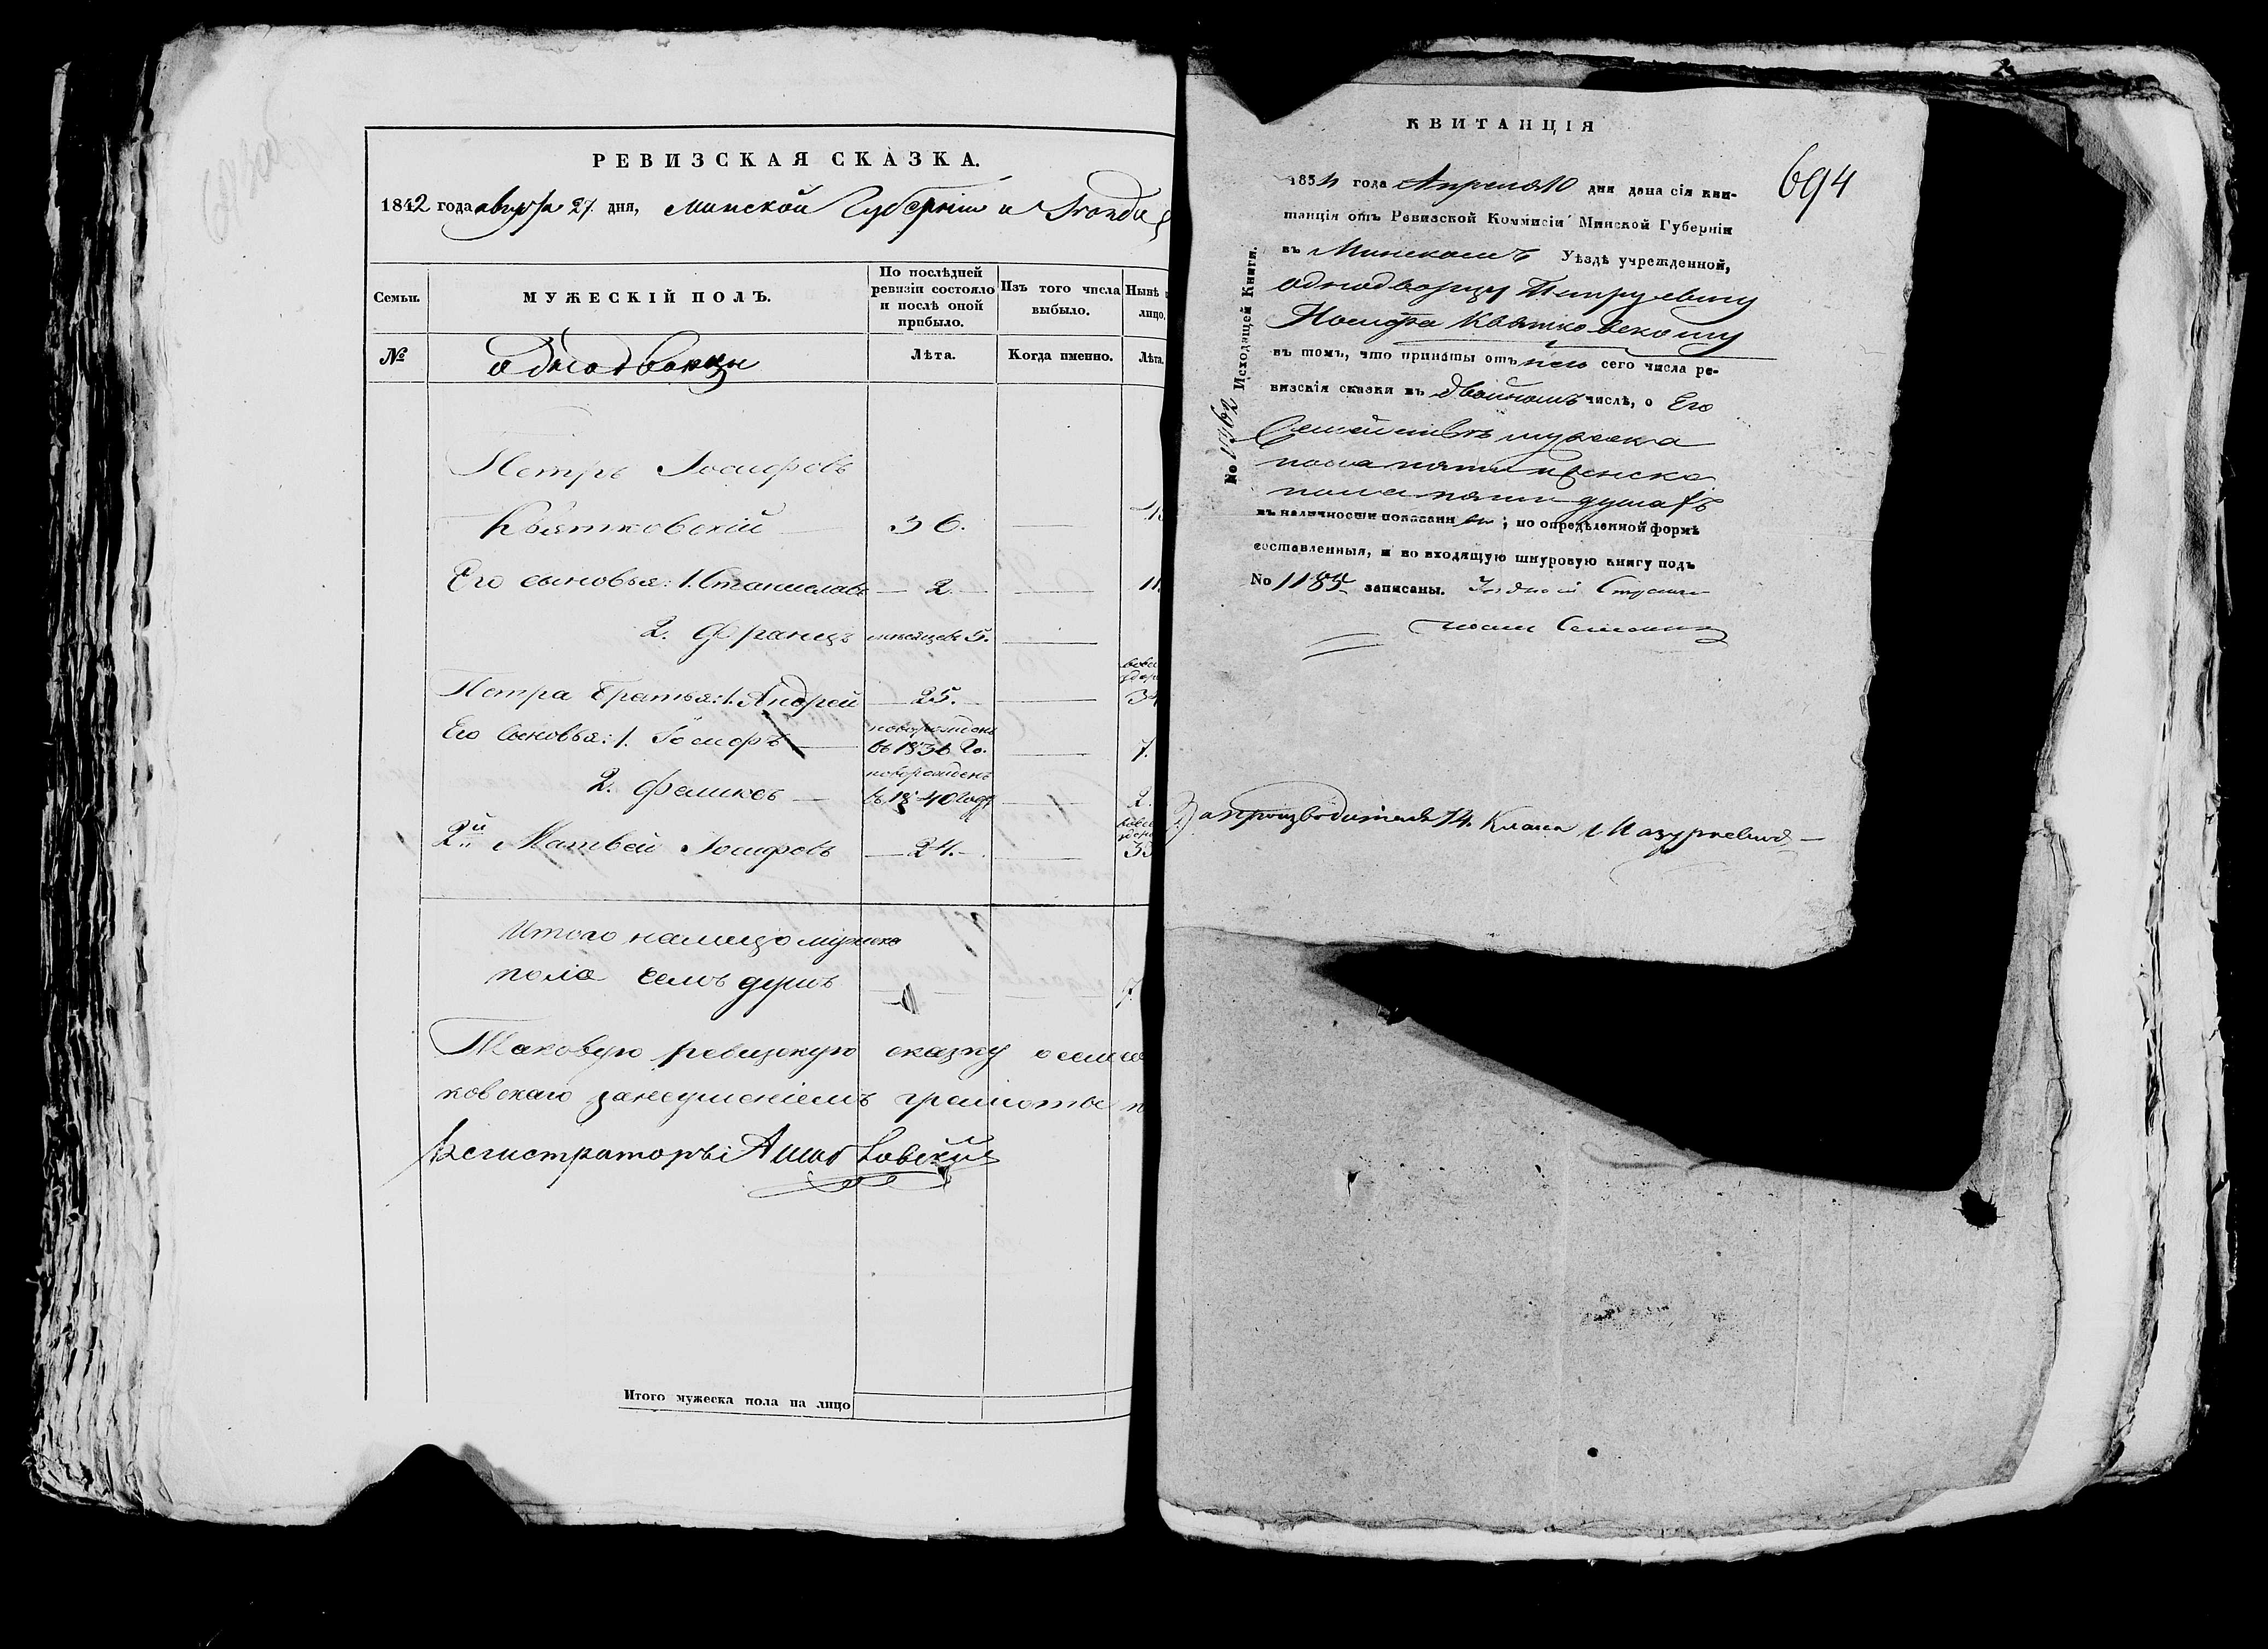 РЕВИЗСКАЯ СКАЗКА.
1842 года августа 27. дня, Минской Губерніи и
Семьи.
МУЖЕСКІЙ ПОЛЪ.
По послѣдней ревизіи состояло и послѣ оной прибыло.
Изъ того числа выбыло.
Нынѣ
лицо.
№
однодворцы
Лѣта.
Когда именно.
Лѣта.
Петръ Іосифовъ
Квятковскій 36.
Его сыновья: 1. Станиславъ 2. 11.
2. Францъ мѣсяцевъ 5.
Петра братья: 1. Андрей 25. 34
Его сыновья: 1. Іосифъ новорожденъ въ 1836 го. 7.
2. Феликсъ новорожденъ въ 1840 году 2.
2й Матвей Іосифовъ 24. 33
Итого налицо мужеска
пола семь душъ 7.
Таковую ревизскую сказку
ковскаго занеумѣніемъ грамоты
Регистраторъ
Итого мужеска пола на лицо
КВИТАНЦІЯ
694
1834 года Апреля 10 дня дана сія кви-
танція отъ Ревизской Коммисіи Минской Губерніи
въ Минскомъ Уѣздѣ учрежденной,
однодворцу Петру
Іосифа Квятковскому
въ томъ, что приняты отъ него сего числа ре-
визскія сказки въ двойномъ числѣ, о Его
Семействѣ мужска
пола пяти женска
пола пяти душахъ
въ наличности показанн; по опредѣленной формѣ
составленныя, и во входящую шнуровую книгу подъ
No 1185 записаны.
No 1192 Исходящей Книги.
За производителя 14. Класа Мазуркевичъ